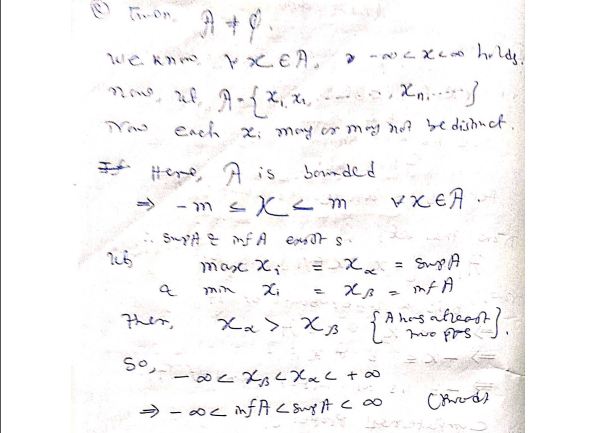 (c) Given, A ≠ φ.
We know ∀ x ∈ A, -∞ < x < ∞ holds.
now, let, A = {x₁, x₂, ......, xₙ, ....}
Now each xᵢ may or may not be distinct.
Here, A is bounded
⇒ -m ≤ x ≤ m ∀ x ∈ A.
∴ sup A & inf A exists.
let max xᵢ = x_α = sup A
& min xᵢ = x_β = inf A
Then, x_α > x_β {A has atleast
two pts}.
So, -∞ < x_β < x_α < +∞
⇒ -∞ < inf A < sup A < ∞ (proved)